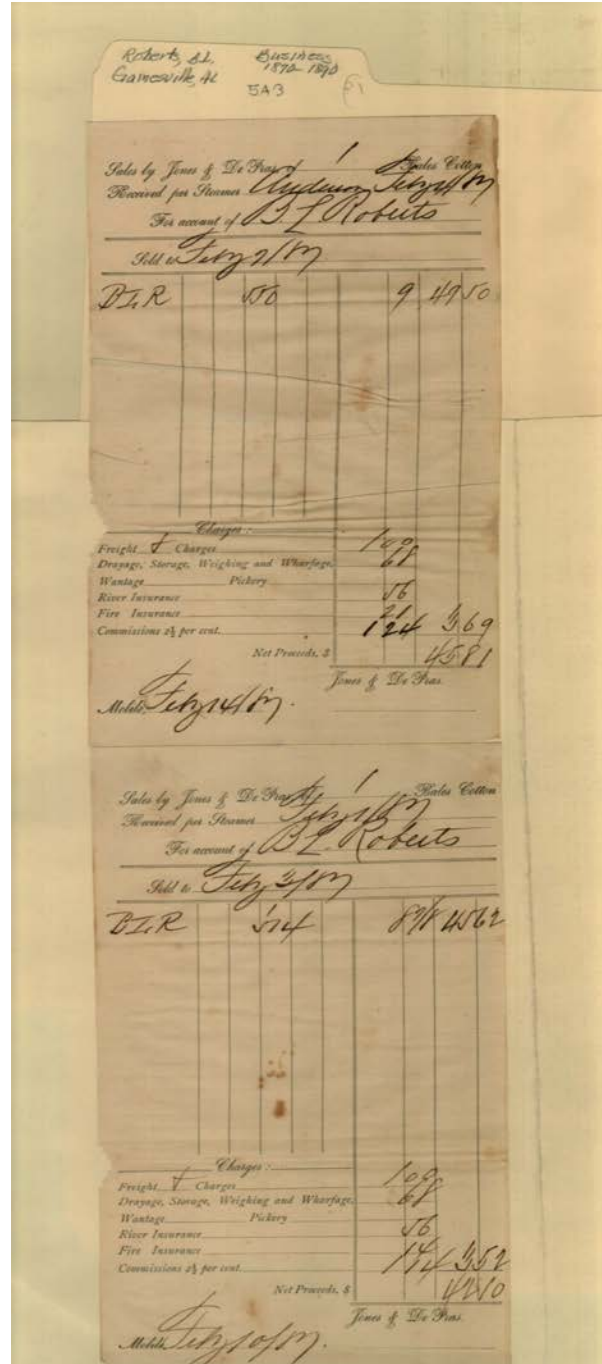 Roberts, B.L. Business
Gainesville, AL 1870-1890
5A3
Sales by Jones & De Fras of 1 Bales Cotton
Received per Steamer Anderson Feby
For account of B L Roberts
Sold to Feby 2/87
BLR 550 9 49 50
Charges:
Freight & Charges 100
Drayage, Storage, Weighing and Wharfage, 68
Wantage Pickery
River Insurance 56
Fire Insurance 21
Commissions 2½ per cent. 1 24 3 69
Net Proceeds, $ 45 81
Jones & De Fras.
Mobile, Feby 14/87.
Sales by Jones & De Fras of 1 Bales Cotton
Received per Steamer Feby 1/87
For account of B L. Roberts
Sold to Feby 3/87
BLR 514 8 7/8 45 62
Charges:
Freight & Charges 100
Drayage, Storage, Weighing and Wharfage, 68
Wantage Pickery
River Insurance 56
Fire Insurance
Commissions 2½ per cent. 3 52
Net Proceeds, $ 42 10
Jones & De Fras.
Mobile, Feby 10/87.